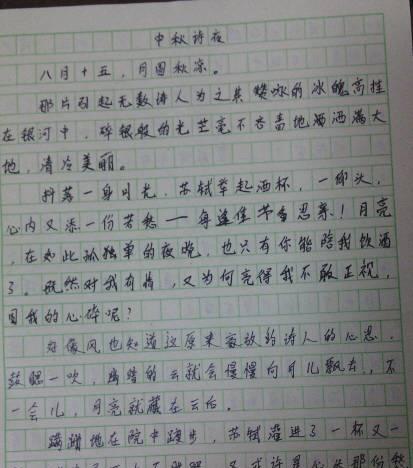 中秋诗夜
八月十五，月圆秋凉。
那片引起无数诗人为之共赞咏的冰魄高挂
在银河中，碎银般的光芒毫不吝啬地洒满大
地，清冷美丽。
抖落一身月光，苏轼举起酒杯，一仰头，
心内又添一份苦愁——每逢佳节倍思亲！月亮
，在如此孤独单的夜晚，也只有你能陪我饮酒
了。既然对我有情，又为何亮得我不敢正视，
因我的心碎呢？
好像风也知道这原来豪放的诗人的心思，
鼓腮一吹，的云就会慢慢向月儿飘去，不
一会儿，月亮就藏在云后。
蹒跚地在院中踱步，苏轼灌进了一杯又一